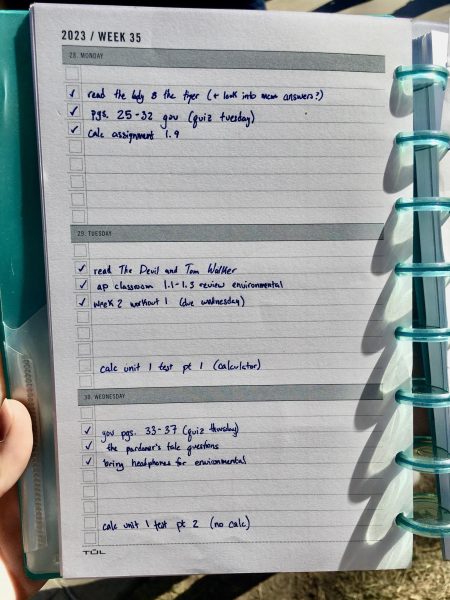 2023 / WEEK 35
28. MONDAY
✓ read the lady & the tiger (+ look into more answers?)
✓ pgs. 25-32 gov (quiz tuesday)
✓ calc assignment 1.9
29. TUESDAY
✓ read The Devil and Tom Walker
✓ ap classroom 1.1-1.3 review environmental
✓ week 2 workout 1 (due wednesday)
calc unit 1 test pt 1 (calculator)
30. WEDNESDAY
✓ gov pgs. 33-37 (quiz thursday)
✓ the pardoner's tale questions
✓ bring headphones for environmental
calc unit 1 test pt 2 (no calc)
TUL